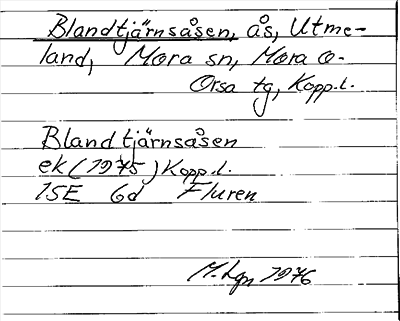 Blandtjärnsåsen, ås, Utme-
land, Mora sn, Mora o.
Orsa tg, Kopp.l.
Blandtjärnsåsen
ek (1975) Kopp.l.
15E 6d Fluren
M. Lgn 1976